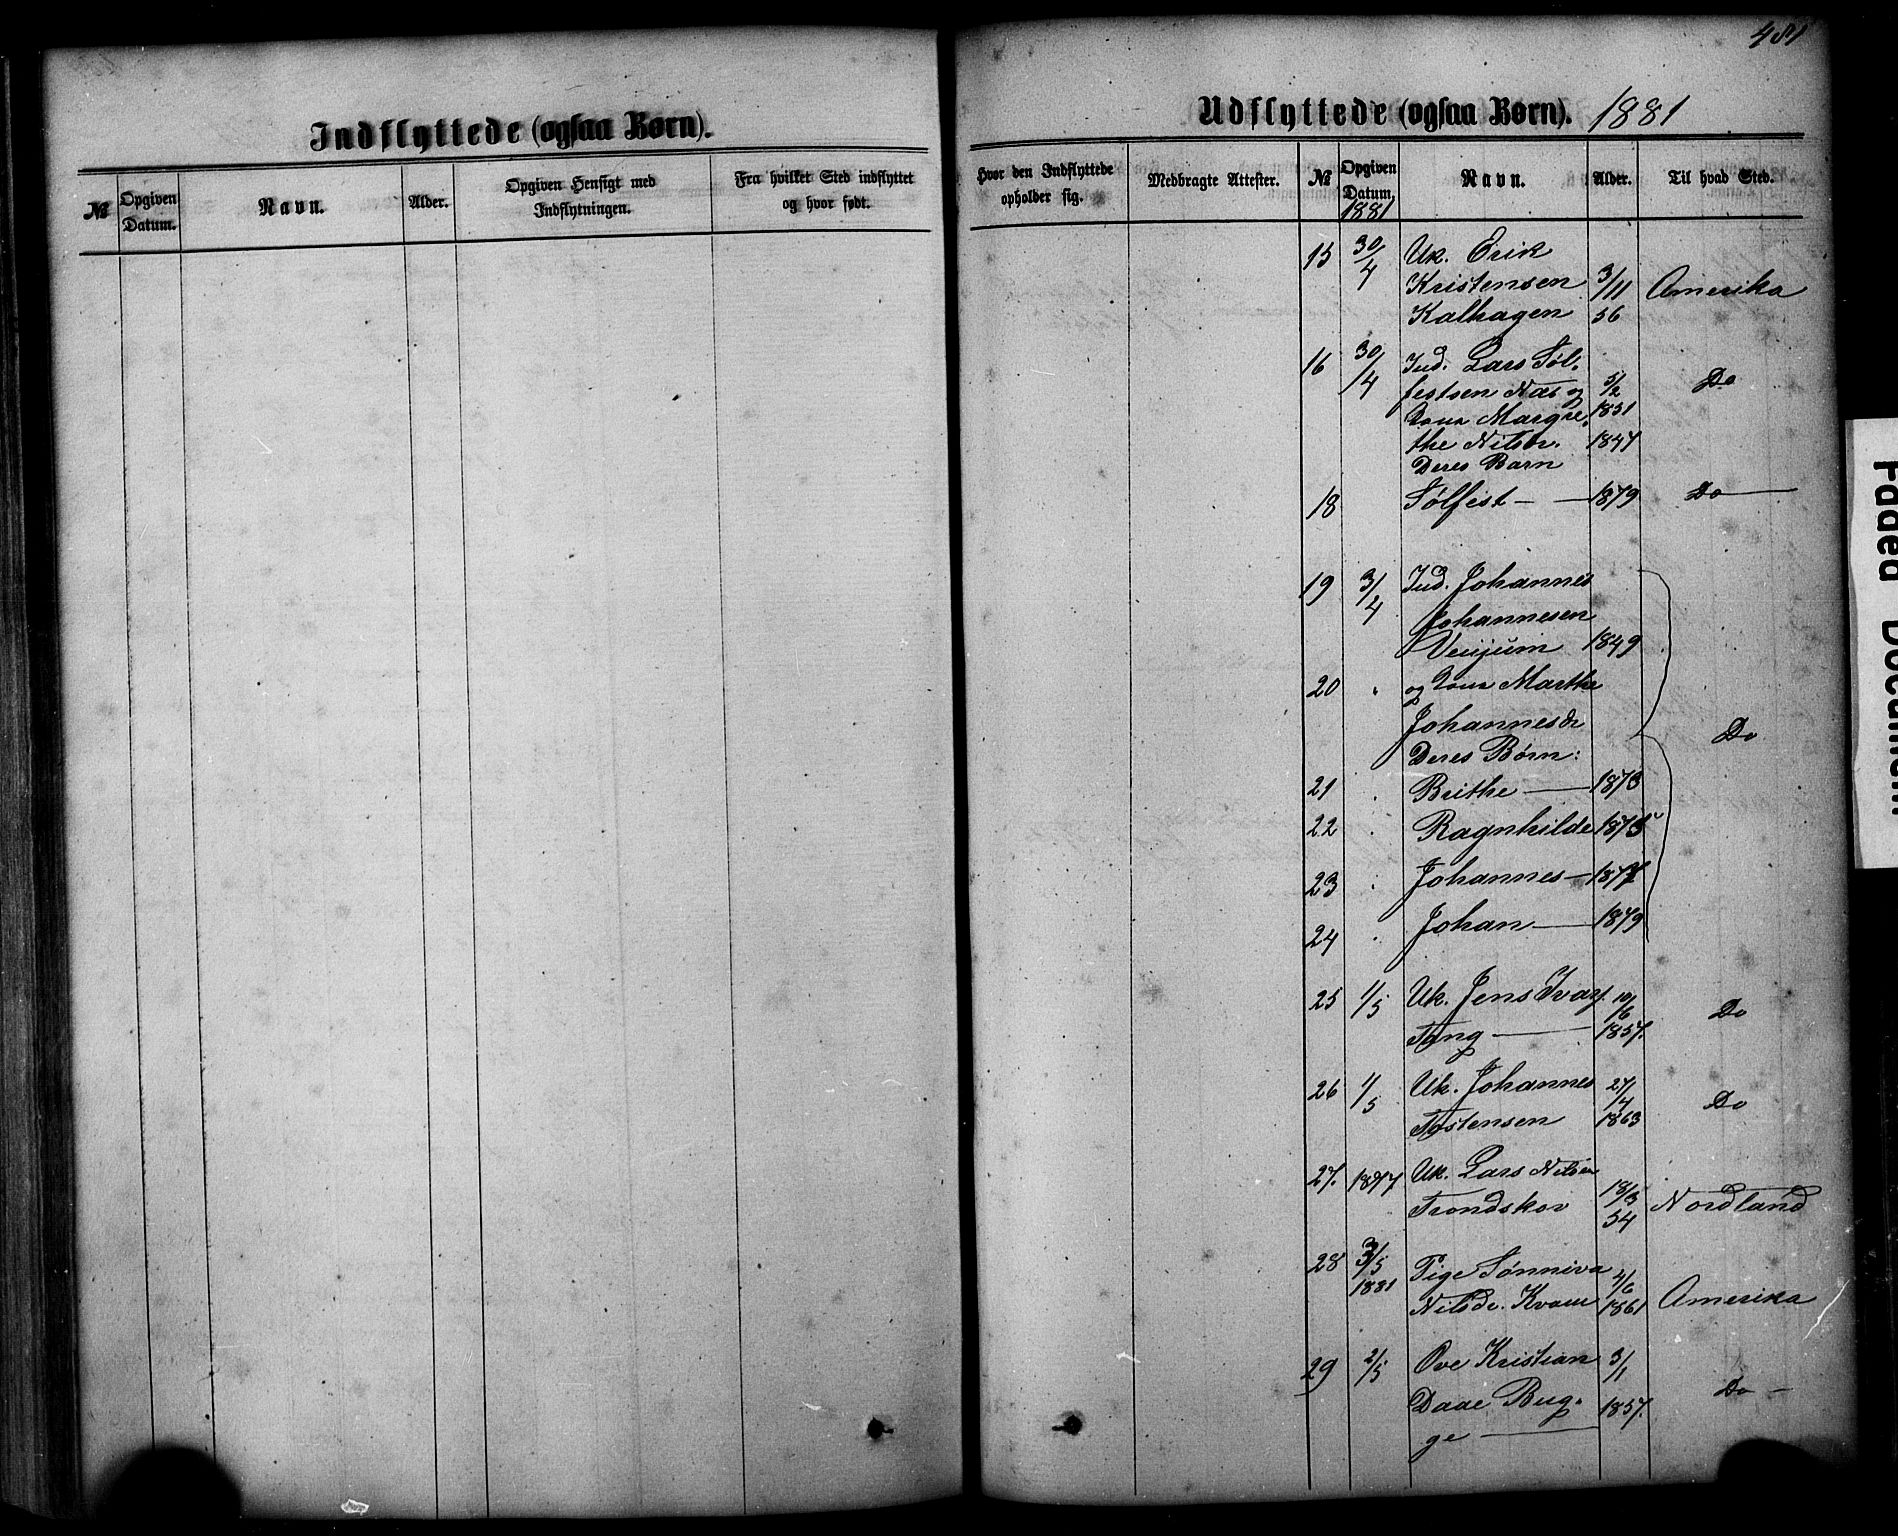 481
Indflyttede (ogsaa Børn).
№
Opgiven Datum.
Navn.
Alder.
Opgiven Hensigt med Indflytningen.
Fra hvilket Sted indflyttet og hvor født.
Udflyttede (ogsaa Børn). 1881
Hvor den Indflyttede opholder sig.
Medbragte Attester.
№
Opgiven Datum.
1881
Navn.
Alder.
Til hvad Sted.
15 30/4 Uk. Erik
Kristensen 3/11 Amerika
Kalhagen 56
16 30/4 Ind. Lars Søl-
festsen Næs og 5/2 Do
Kona Margre- 1851
the Nilsdr. 1847
Deres Barn
18 Sølfest — 1879 Do —
19 3/4 Ind. Johannes
Johannesen
Venjum 1849
20 " og Kona Marthe
Johannesdr Do
Deres Børn:
21 " Brithe — 1873
22 " Ragnhilde 1875
23 " Johannes — 1877
24 " Johan — 1879
25 1/5 Uk. Jens Ivar 10/6 Do
Tang — 1857.
26 1/5 Uk. Johannes 27/4 Do
Tostensen 1863
27. 1877 Uk. Lars Nilsen
Trondskov 18/3 54 Nordland
28 3/5 1881 Pige Sønniva 4/6
Nilsdr. Kvam 1861 Amerika
29 2/5 Ove Kristian 3/1
Daae Bug- 1857. Do —
ge —
Faded Document